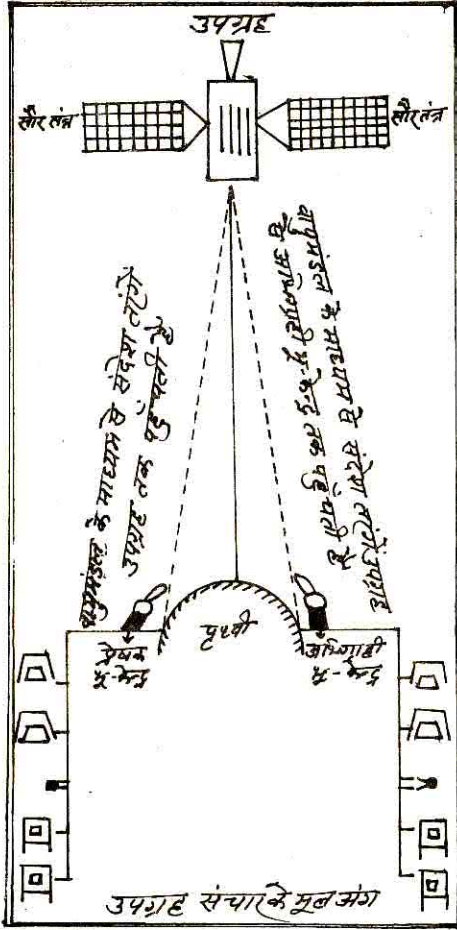 उपग्रह
सौर तंत्र
सौर तंत्र
वायुमंडल के माध्यम से संदेश तरंगें
उपग्रह तक पहुंचती हैं
वायुमंडल के माध्यम से संदेश तरंगें उपग्रह
से अभिग्राही भू-केन्द्र तक पहुंचती हैं
प्रेषक
भू-केन्द्र
पृथ्वी
अभिग्राही
भू-केन्द्र
उपग्रह संचार के मूल अंग